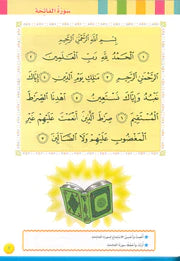 سورة الفاتحة
بِسْمِ اللَّهِ الرَّحْمَٰنِ الرَّحِيمِ
١ الْحَمْدُ لِلَّهِ رَبِّ الْعَالَمِينَ ٢
الرَّحْمَٰنِ الرَّحِيمِ ٣ مَالِكِ يَوْمِ الدِّينِ ٤ إِيَّاكَ
نَعْبُدُ وَإِيَّاكَ نَسْتَعِينُ ٥ اهْدِنَا الصِّرَاطَ
الْمُسْتَقِيمَ ٦ صِرَاطَ الَّذِينَ أَنْعَمْتَ عَلَيْهِمْ غَيْرِ
الْمَغْضُوبِ عَلَيْهِمْ وَلَا الضَّالِّينَ ٧
سورة الفاتحة
سورة الفاتحة